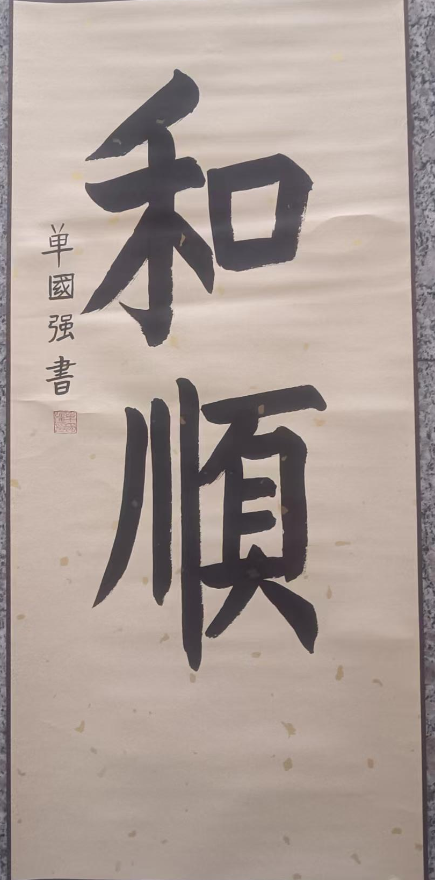 和順
单國强書